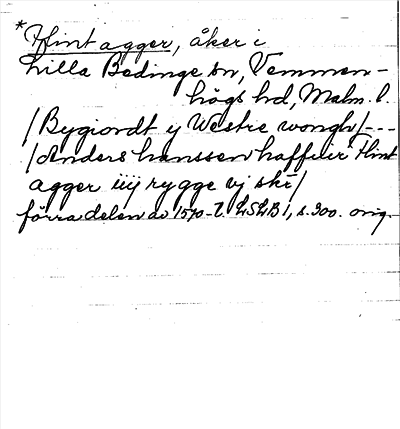 * Hintagger, åker i
Lilla Bedinge sn, Vemmen-
högs hd, Malm. l.
/Bygiordt ij Westre wongh/---
/Anders hanssen haffuer Hint
agger iiij rygge vj ski/
förra delen av 1570-t. LSLB 1, s. 300. orig.